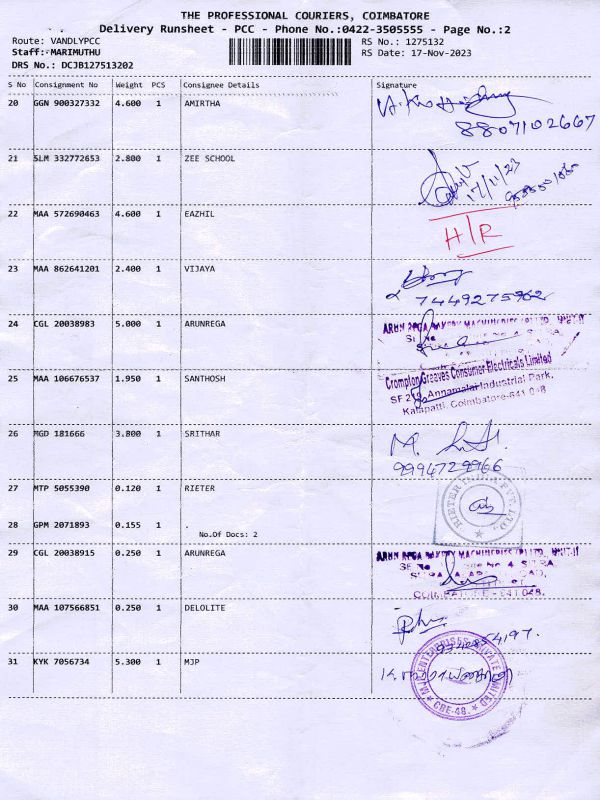 THE PROFESSIONAL COURIERS, COIMBATORE
Delivery Runsheet - PCC - Phone No.:0422-3505555 - Page No.:2
Route: VANDLYPCC RS No.: 1275132
Staff: MARIMUTHU RS Date: 17-Nov-2023
DRS No.: DCJB127513202
S No Consignment No Weight PCS Consignee Details Signature
20 GGN 900327332 4.600 1 AMIRTHA
8807102667
21 SLM 332772653 2.800 1 ZEE SCHOOL
17/11/23
22 MAA 572690463 4.600 1 EAZHIL
H/R
23 MAA 862641201 2.400 1 VIJAYA
7449275962
24 CGL 20038983 5.000 1 ARUNREGA
ARUN REGA BAKERY MACHINERIES (P) LTD., UNIT-II
25 MAA 106676537 1.950 1 SANTHOSH
Crompton Greaves Consumer Electricals Limited
SF 219, Annamalai Industrial Park,
Kalapatti, Coimbatore-641 048
26 MGD 181666 3.800 1 SRITHAR
9994729966
27 MTP 5055390 0.120 1 RIETER
RIETER INDIA PVT. LTD.
28 GPM 2071893 0.155 1 .
No.Of Docs: 2
29 CGL 20038915 0.250 1 ARUNREGA
ARUN REGA BAKERY MACHINERIES (P) LTD., UNIT-II
COIMBATORE - 641 048.
30 MAA 107566851 0.250 1 DELOLITE
9340854197.
31 KYK 7056734 5.300 1 MJP
MJP ENTERPRISES PRIVATE LIMITED
CBE-48.